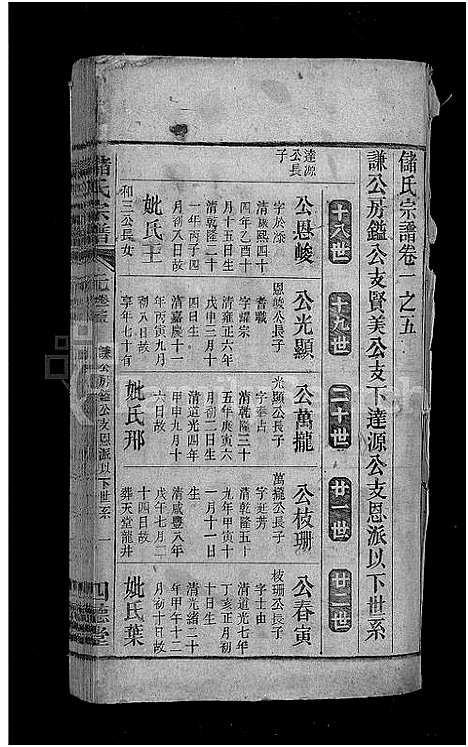 儲氏宗譜卷一之五
謙公房鎰公支賢美公支下達源公支恩派以下世系
十八世
十九世
二十世
廿一世
廿二世
達源
公長
子
公恩峻
字於
清康熙四十
四年乙酉十
月十五日生
清乾隆二十
一年丙子四
月初八日故
妣氏王
和三公長女
公光顯
恩峻公長子
字耀宗
耆職
清雍正六年
戊申三月十
四日生
清嘉慶十一
年丙寅九月
初八日故
享年七十有
公萬攏
光顯公長子
字奉占
清乾隆三十
五年庚寅六
月初二日生
清道光四年
甲申九月十
六日故
妣氏邢
公枝珊
萬攏公長子
字延芳
清乾隆五十
九年甲寅十
一月十一日
生
清咸豐八年
戊午七月二
十四日故
葬天堂龍井
公春寅
枝珊公長子
字士由
清道光七年
丁亥正月初
十日生
清光緒二十
年甲午十二
月初十日故
妣氏葉
儲氏宗譜
謙公房鎰公支恩派以下世系
一
四德堂